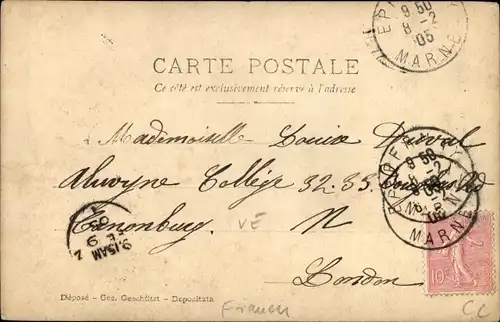 EPERNAY
9 50
8 - 2
05
MARNE
CARTE POSTALE
Ce côté est exclusivement réservé à l'adresse
Mademoiselle Louise
Alwyne Collège 32.33
9 50
8 - 2
05
MARNE
Canonbury. N
VE
9.15AM
FE 9
05
London
10
Déposé - Ges. Geschützt - Depositata
CC